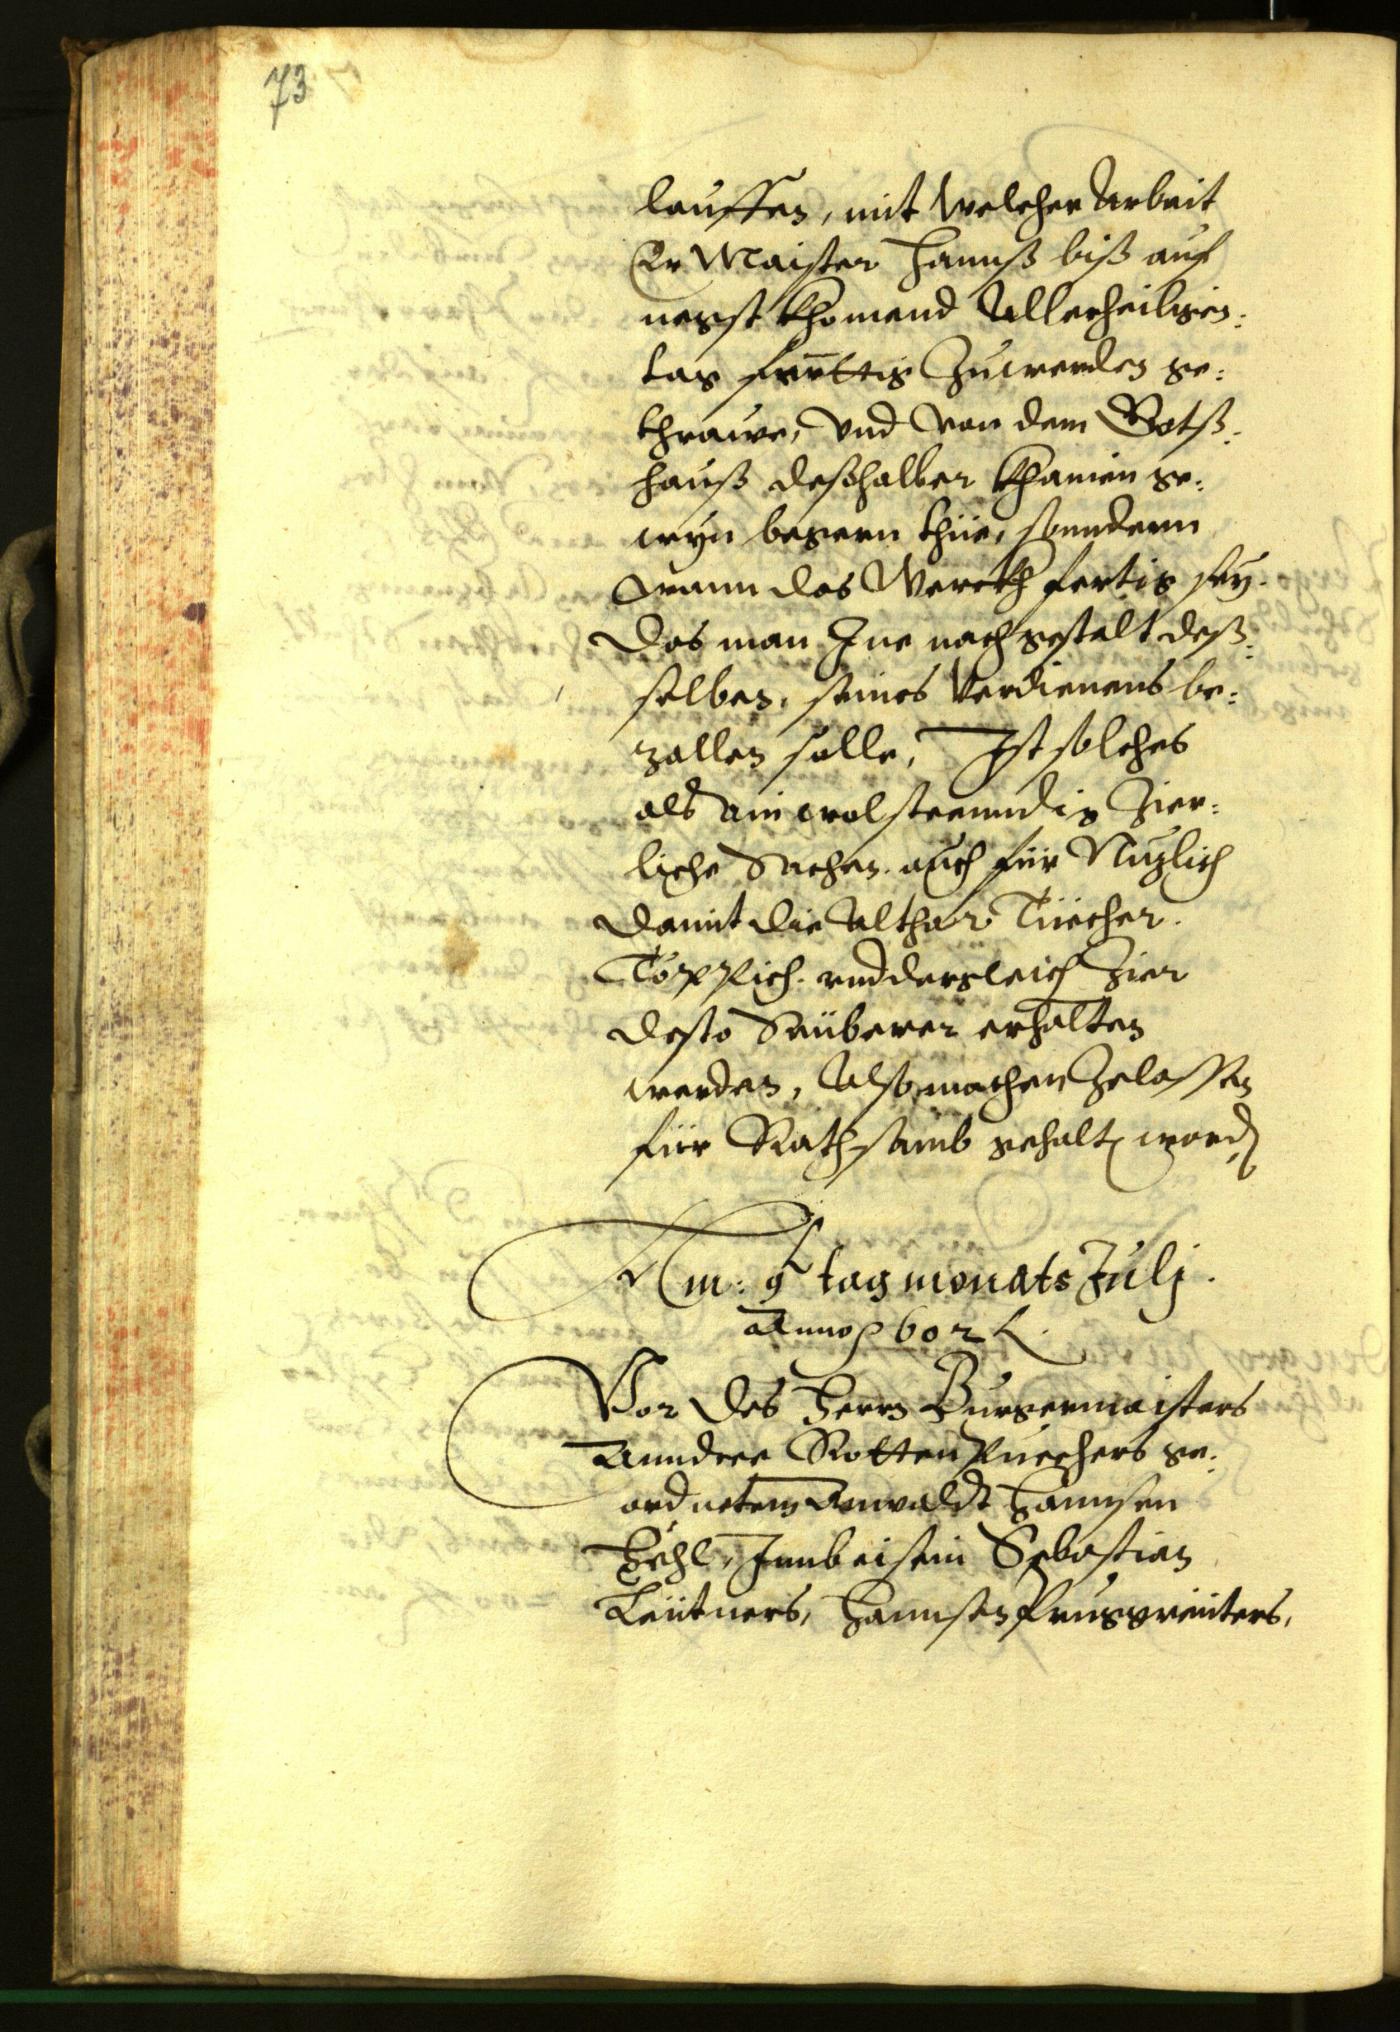 73
lauffen, mit welcher Arbeit
Er Maister Hannß biß auf
negst khomend Allerheiligen:
tag ferttig zuwerden ge:
thrawe, vnd von dem Gotß:
hauß deßhalber khainen ge:
wyn begern thüe, sonndern
wann das Werckh fertig sey.
das man Ine nach gestalt deß:
selben, seines Verdienens be:
zallen solle, Ist solches
als ain wolsteenndig Zier:
liche Sachen. auch für Nuzlich
damit die Althar Tüecher.
Töppich. vnd dergleich Zier
desto Seüberer erhalten
werden, Also machen zelassen
für Rathsamb gehalt worden
Am: 9 tag monats Julj.
Anno 602
Vor des Herrn Burgermaisters
Anndree Rottenpuechers ge:
ordnetem Anwaldt Hannsen
Hehl, Inn beisein Sebastian
Leütners, Hannsen Pruggreiiters,